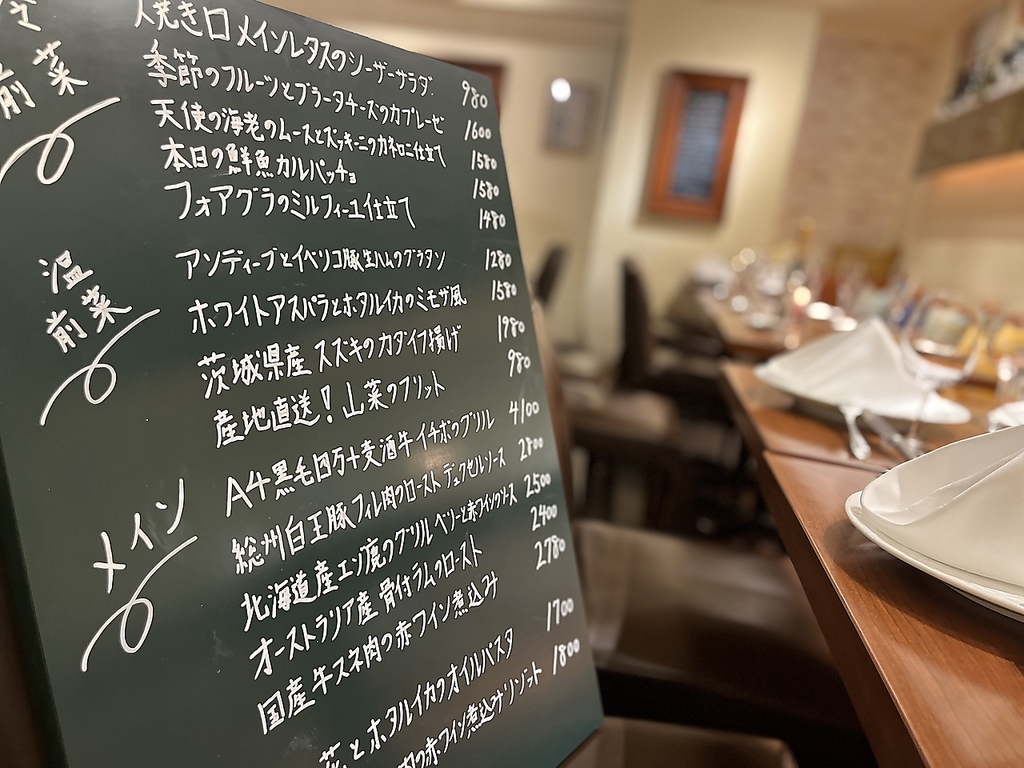 前菜
焼き口メインレタスのシーザーサラダ 980
季節のフルーツとブラータチーズのカプレーゼ 1600
天使の海老のムースとズッキーニのカネロニ仕立て 1580
本日の鮮魚カルパッチョ 1580
フォアグラのミルフィーユ仕立て 1480
温前菜
アンディーブとイベリコ豚生ハムのグラタン 1280
ホワイトアスパラとホタルイカのミモザ風 1580
茨城県産 スズキのカダイフ揚げ 1980
産地直送！山菜のフリット 980
メイン
A4黒毛四万十麦酒牛イチボのグリル 4100
総州白王豚フィレ肉のロースト デュクセルソース 2800
北海道産エゾ鹿のグリル ベリーと赤ワインソース 2500
オーストラリア産 骨付ラムのロースト 2400
国産牛スネ肉の赤ワイン煮込み 2780
菜とホタルイカのオイルパスタ 1700
肉の赤ワイン煮込みリゾット 1800